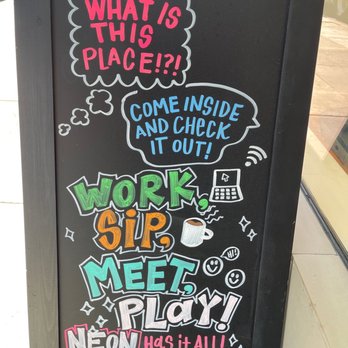 WHAT IS
THIS
PLACE!?!
COME INSIDE
AND CHECK
IT OUT!
WORK,
SiP,
HI!
MEET,
PLAY!
NEON Has it ALL!